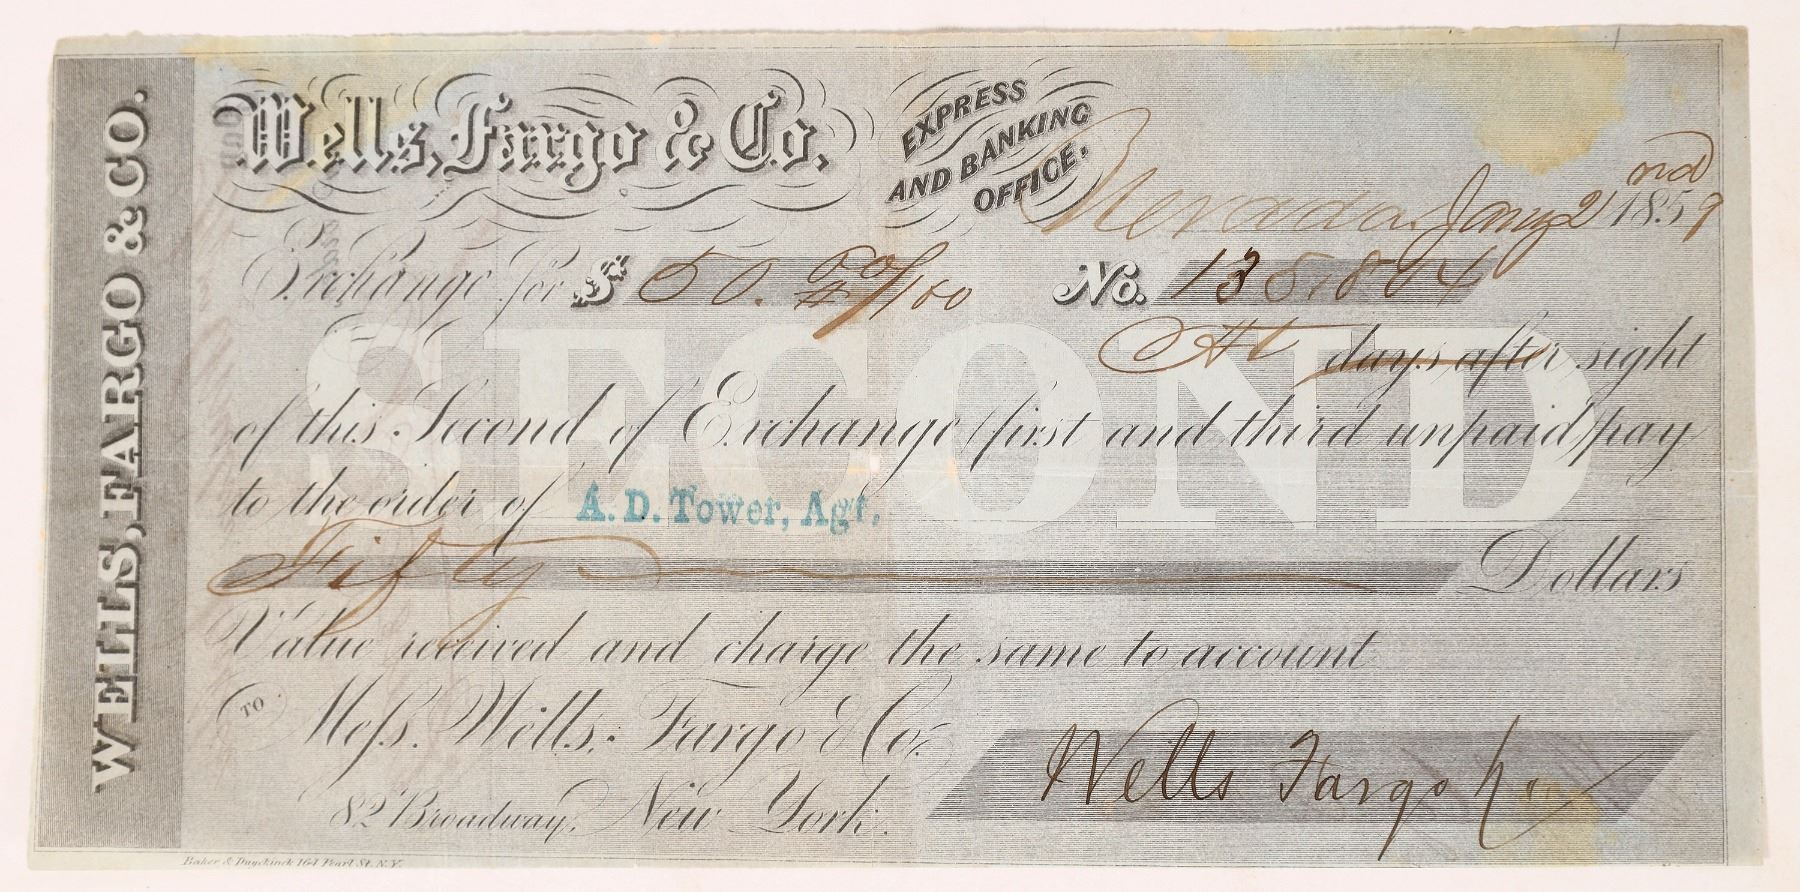 WELLS, FARGO & CO.
Wells, Fargo & Co.
EXPRESS
AND BANKING
OFFICE.
Nevada Jany 2nd 1859
Exchange for $ 50. 00/100 No.
SECOND
At days after sight
of this Second of Exchange (first and third unpaid) pay
to the order of A. D. Tower, Agt.
Fifty Dollars
Value received and charge the same to account
TO Mess. Wells, Fargo & Co.
82 Broadway, New York.
Wells Fargo & Co
Baker & Duyckinck 164 Pearl St. N.Y.